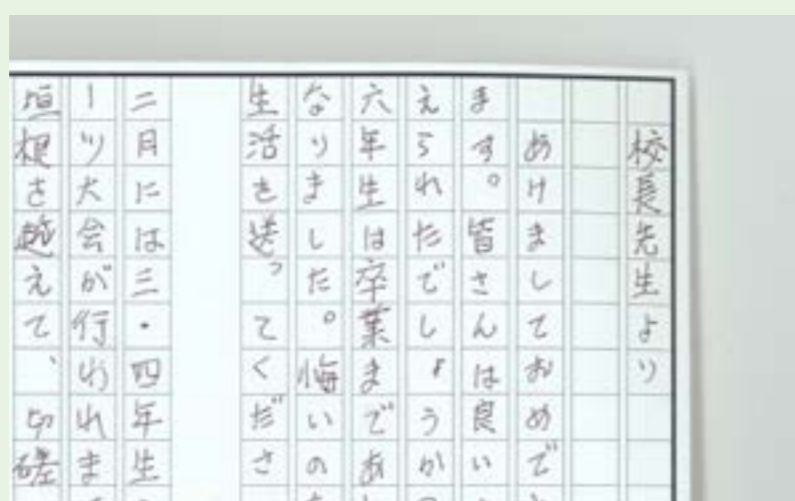 校長先生より
あけましておめでと
ます。皆さんは良い
えられたでしょうか
六年生は卒業まであ
なりました。悔いの
生活を送ってくださ
二月には三・四年生
ーツ大会が行われま
垣根を越えて、切磋